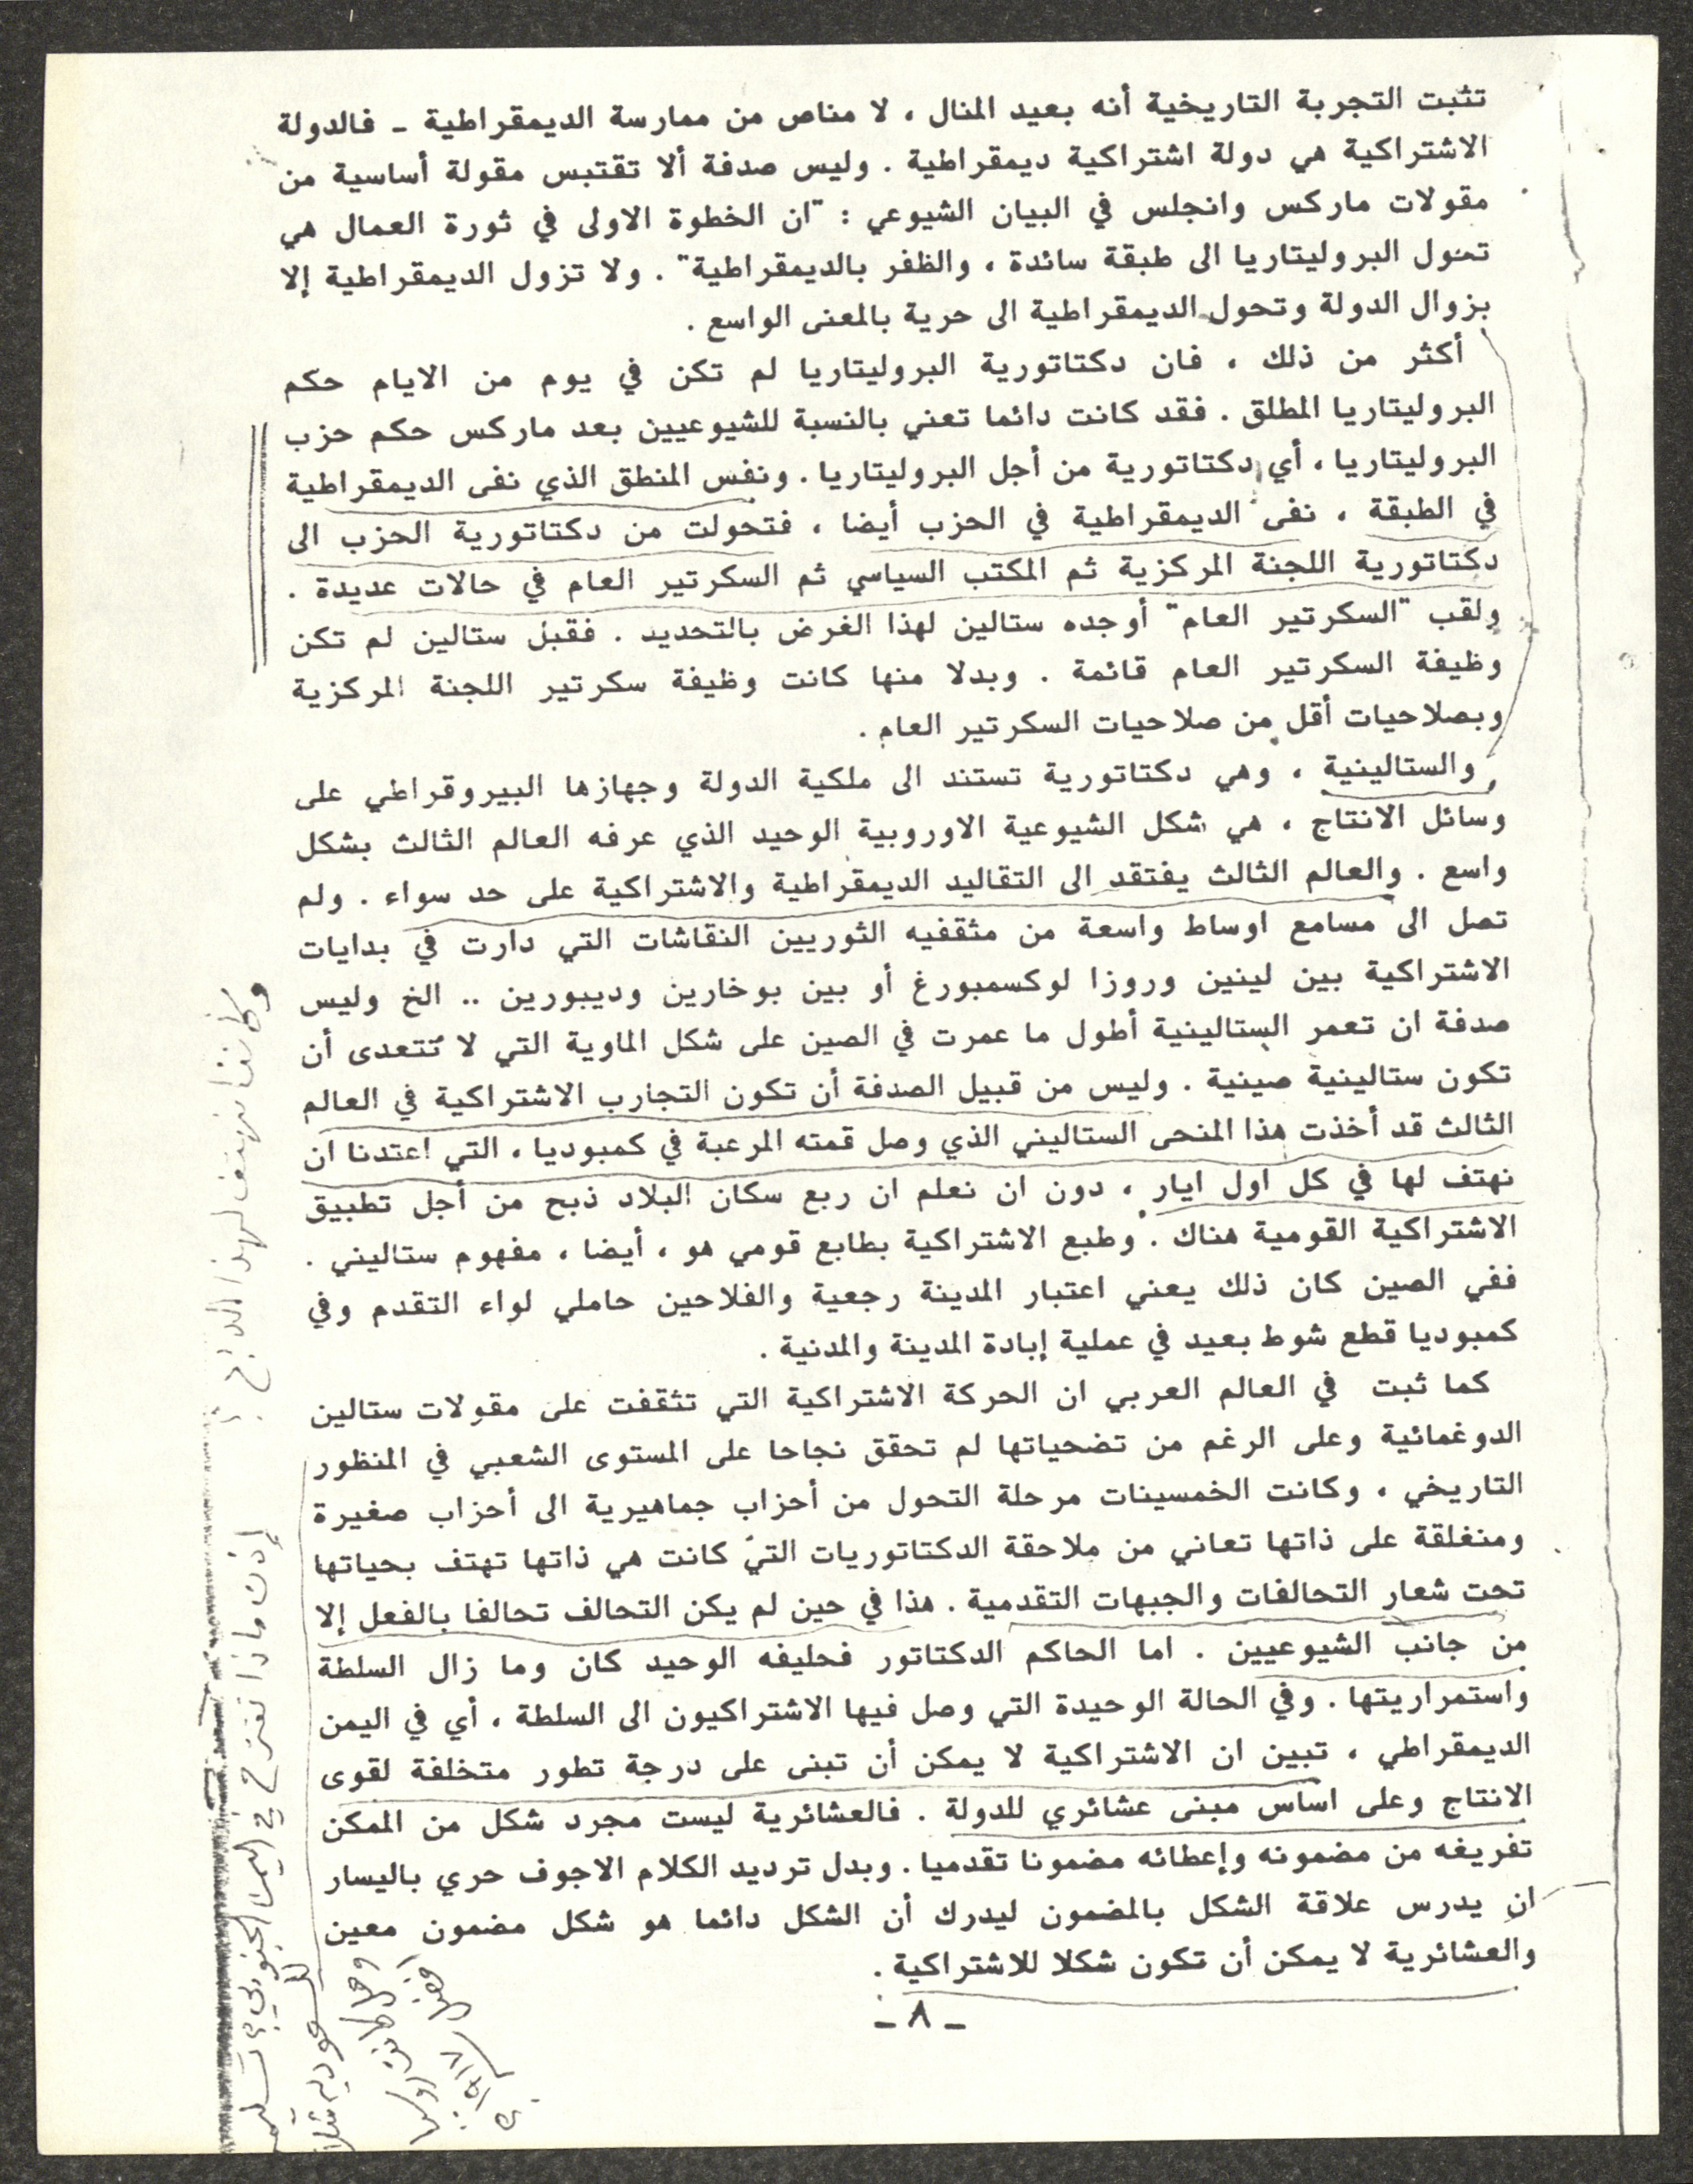 تثبت التجربة التاريخية أنه بعيد المنال ، لا مناص من ممارسة الديمقراطية ـ فالدولة
الاشتراكية هي دولة اشتراكية ديمقراطية . وليس صدفة ألا تقتبس مقولة أساسية من
مقولات ماركس وانجلس في البيان الشيوعي : "ان الخطوة الاولى في ثورة العمال هي
تحول البروليتاريا الى طبقة سائدة ، والظفر بالديمقراطية" . ولا تزول الديمقراطية إلا
بزوال الدولة وتحول الديمقراطية الى حرية بالمعنى الواسع .
أكثر من ذلك ، فان دكتاتورية البروليتاريا لم تكن في يوم من الايام حكم
البروليتاريا المطلق . فقد كانت دائما تعني بالنسبة للشيوعيين بعد ماركس حكم حزب
البروليتاريا ، أي دكتاتورية من أجل البروليتاريا . ونفس المنطق الذي نفى الديمقراطية
في الطبقة ، نفى الديمقراطية في الحزب أيضا ، فتحولت من دكتاتورية الحزب الى
دكتاتورية اللجنة المركزية ثم المكتب السياسي ثم السكرتير العام في حالات عديدة .
ولقب "السكرتير العام" أوجده ستالين لهذا الغرض بالتحديد . فقبل ستالين لم تكن
وظيفة السكرتير العام قائمة . وبدلا منها كانت وظيفة سكرتير اللجنة المركزية
وبصلاحيات أقل من صلاحيات السكرتير العام .
والستالينية ، وهي دكتاتورية تستند الى ملكية الدولة وجهازها البيروقراطي على
وسائل الانتاج ، هي شكل الشيوعية الاوروبية الوحيد الذي عرفه العالم الثالث بشكل
واسع . والعالم الثالث يفتقد الى التقاليد الديمقراطية والاشتراكية على حد سواء . ولم
تصل الى مسامع اوساط واسعة من مثقفيه الثوريين النقاشات التي دارت في بدايات
الاشتراكية بين لينين وروزا لوكسمبورغ أو بين بوخارين وديبورين .. الخ وليس
صدفة ان تعمر الستالينية أطول ما عمرت في الصين على شكل الماوية التي لا تتعدى أن
تكون ستالينية صينية . وليس من قبيل الصدفة أن تكون التجارب الاشتراكية في العالم
الثالث قد أخذت هذا المنحى الستاليني الذي وصل قمته المرعبة في كمبوديا ، التي اعتدنا ان
نهتف لها في كل اول ايار ، دون ان نعلم ان ربع سكان البلاد ذبح من أجل تطبيق
الاشتراكية القومية هناك . وطبع الاشتراكية بطابع قومي هو ، أيضا ، مفهوم ستاليني .
ففي الصين كان ذلك يعني اعتبار المدينة رجعية والفلاحين حاملي لواء التقدم وفي
كمبوديا قطع شوط بعيد في عملية إبادة المدينة والمدنية .
كما ثبت في العالم العربي ان الحركة الاشتراكية التي تثقفت على مقولات ستالين
الدوغمائية وعلى الرغم من تضحياتها لم تحقق نجاحا على المستوى الشعبي في المنظور
التاريخي ، وكانت الخمسينات مرحلة التحول من أحزاب جماهيرية الى أحزاب صغيرة
ومنغلقة على ذاتها تعاني من ملاحقة الدكتاتوريات التي كانت هي ذاتها تهتف بحياتها
تحت شعار التحالفات والجبهات التقدمية . هذا في حين لم يكن التحالف تحالفا بالفعل إلا
من جانب الشيوعيين . اما الحاكم الدكتاتور فحليفه الوحيد كان وما زال السلطة
واستمراريتها . وفي الحالة الوحيدة التي وصل فيها الاشتراكيون الى السلطة ، أي في اليمن
الديمقراطي ، تبين ان الاشتراكية لا يمكن أن تبنى على درجة تطور متخلفة لقوى
الانتاج وعلى اساس مبنى عشائري للدولة . فالعشائرية ليست مجرد شكل من الممكن
تفريغه من مضمونه وإعطائه مضمونا تقدميا . وبدل ترديد الكلام الاجوف حري باليسار
ان يدرس علاقة الشكل بالمضمون ليدرك أن الشكل دائما هو شكل مضمون معين
والعشائرية لا يمكن أن تكون شكلا للاشتراكية .
ـ ٨ ـ
وكأننا نهتف لهذا الذبح !
إذن ماذا تقترح في اليمن الجنوبي؟ تسليمه
للسعودية مثلا
وهل كانت روسيا
افضل سنة ١٩١٧ ؟